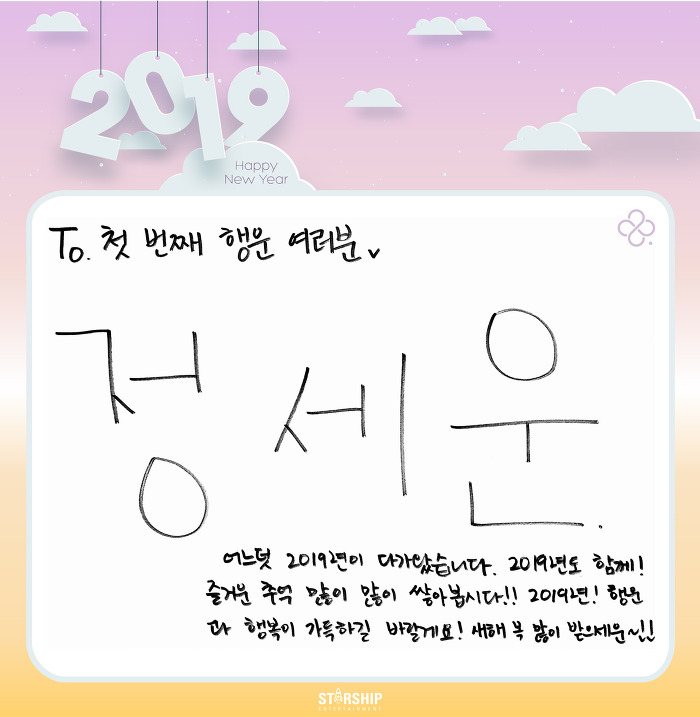 2019
Happy
New Year
To. 첫 번째 행운 여러분
정세운.
어느덧 2019년이 다가왔습니다. 2019년도 함께!
즐거운 추억 많이 많이 쌓아봅시다!! 2019년! 행운
과 행복이 가득하길 바랄게요! 새해 복 많이 받으세운~!!
STARSHIP
ENTERTAINMENT